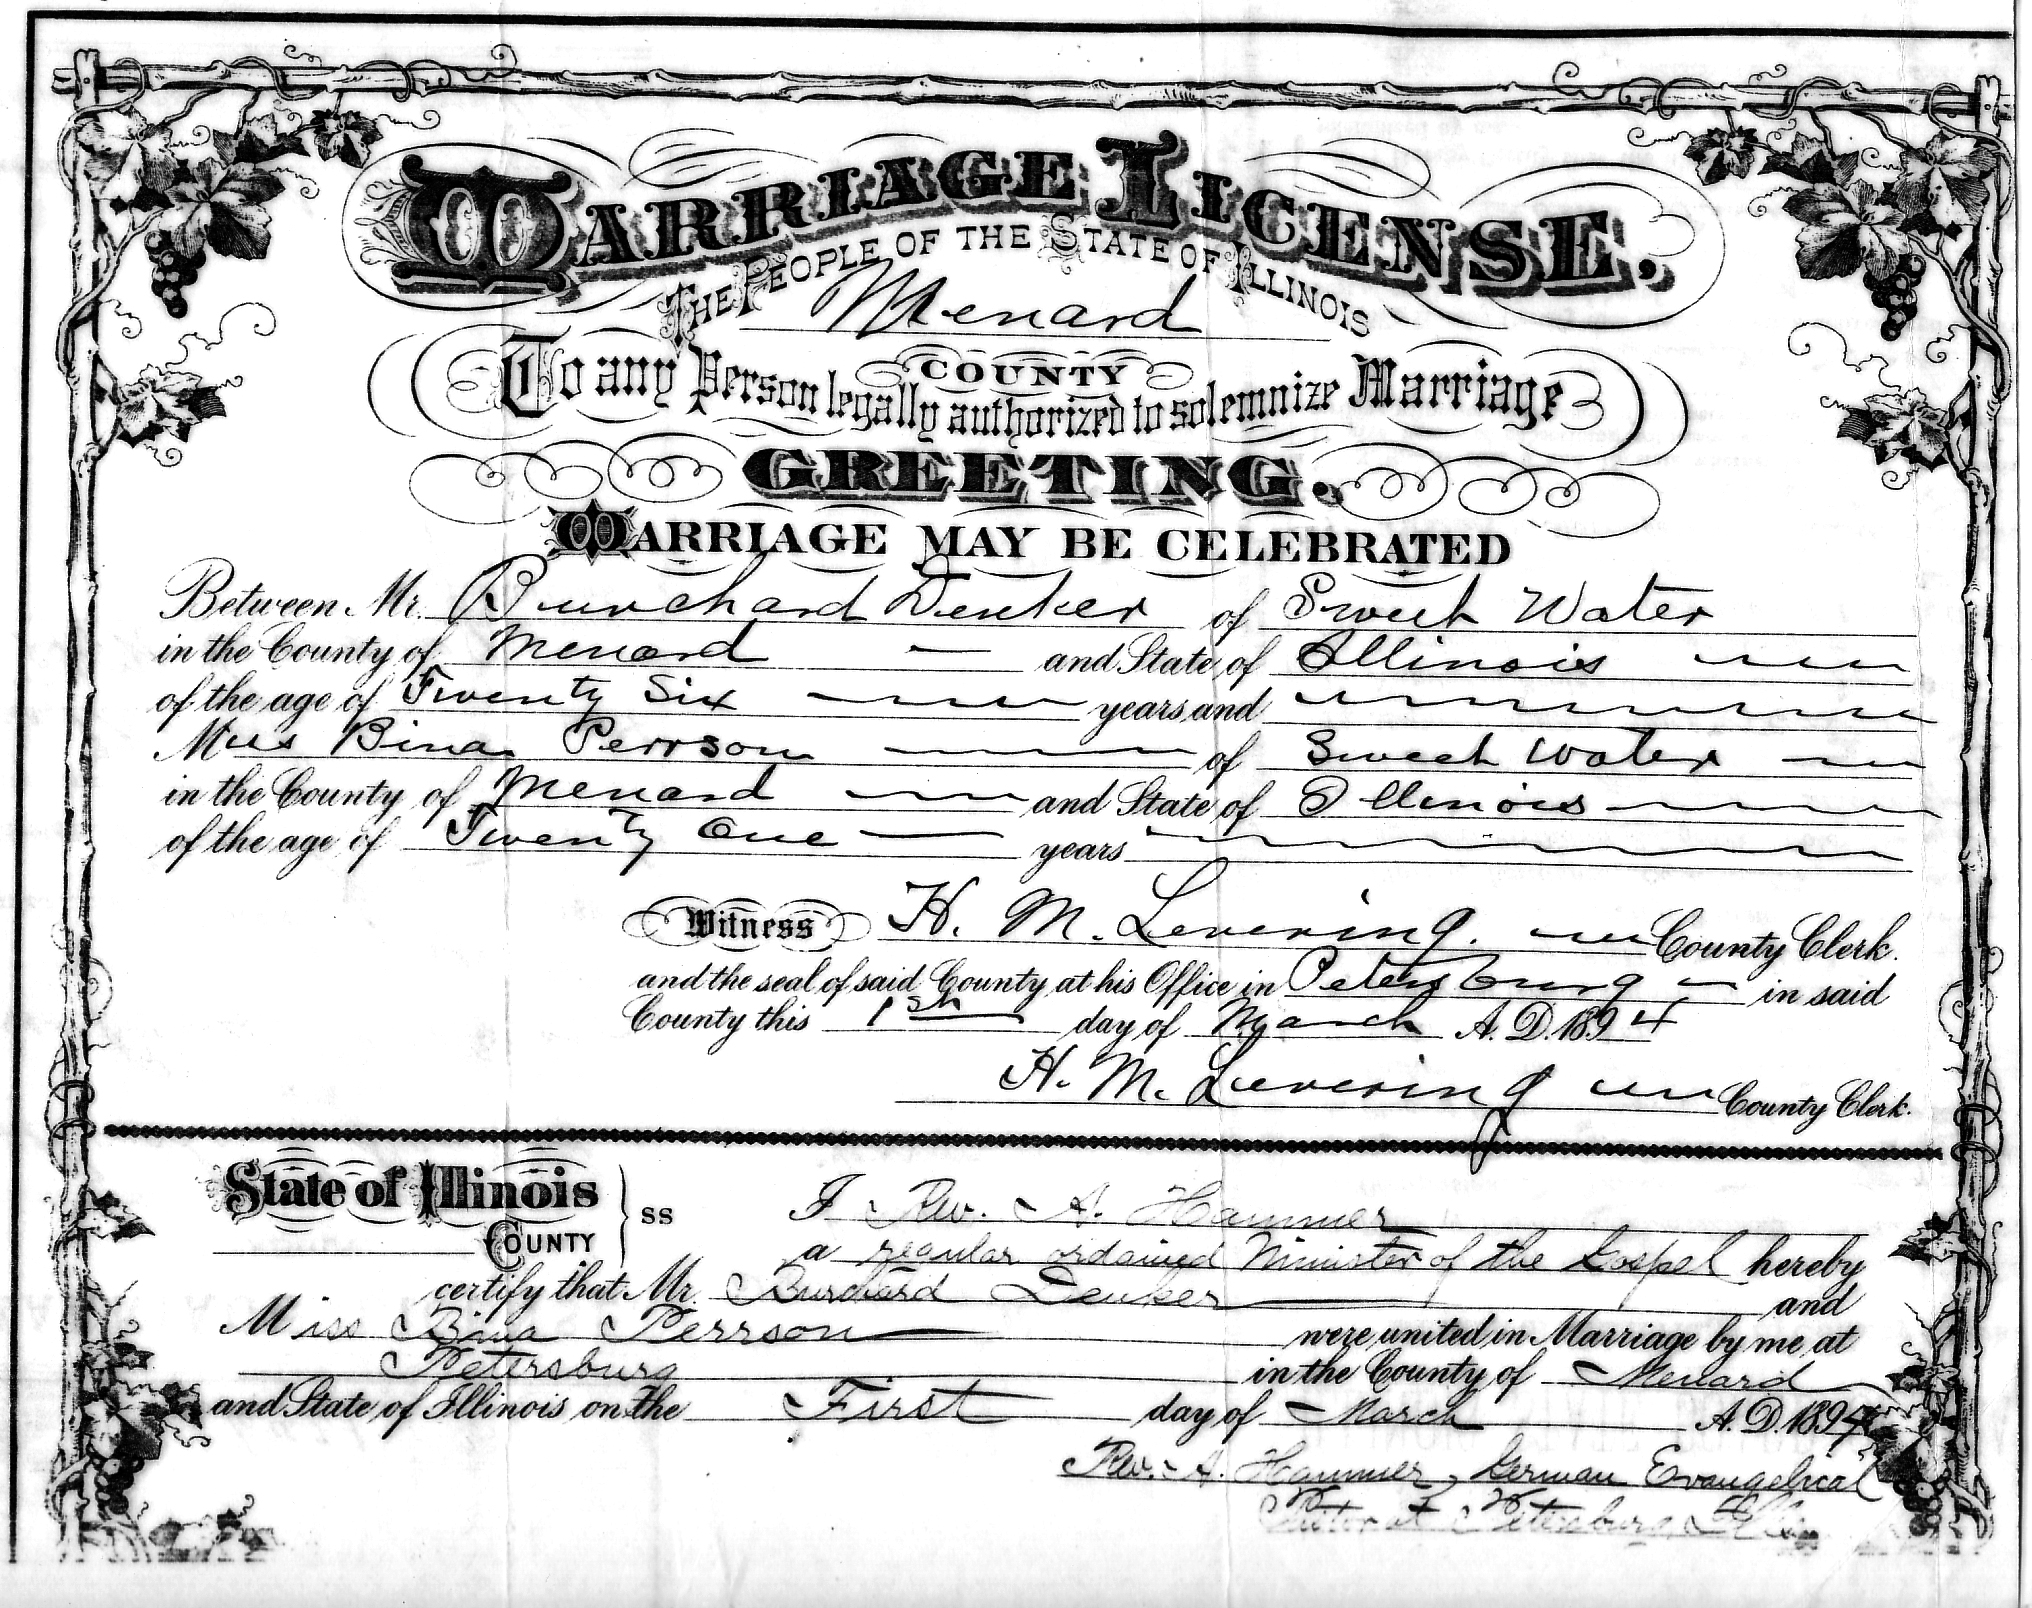 MARRIAGE LICENSE.
THE PEOPLE OF THE STATE OF ILLINOIS
Menard
COUNTY
To any Person legally authorized to solemnize Marriage
GREETING.
MARRIAGE MAY BE CELEBRATED
Between Mr. Burchard Denker of Sweet Water
in the County of Menard and State of Illinois
of the age of Twenty Six years and
Miss Bina Perrson of Sweet Water
in the County of Menard and State of Illinois
of the age of Twenty One years
Witness H. M. Levering. County Clerk.
and the seal of said County at his Office in Petersburg in said
County this 1st day of March A.D. 1894
H. M. Levering County Clerk.
State of Illinois
COUNTY } ss I Rev. A. Hammer
a regular ordained Minister of the Gospel hereby
certify that Mr. Burchard Denker and
Miss Bina Perrson were united in Marriage by me at
Petersburg in the County of Menard
and State of Illinois on the First day of March A.D. 1894
Rev. A. Hammer, German Evangelical
Pastor at Petersburg, Ills